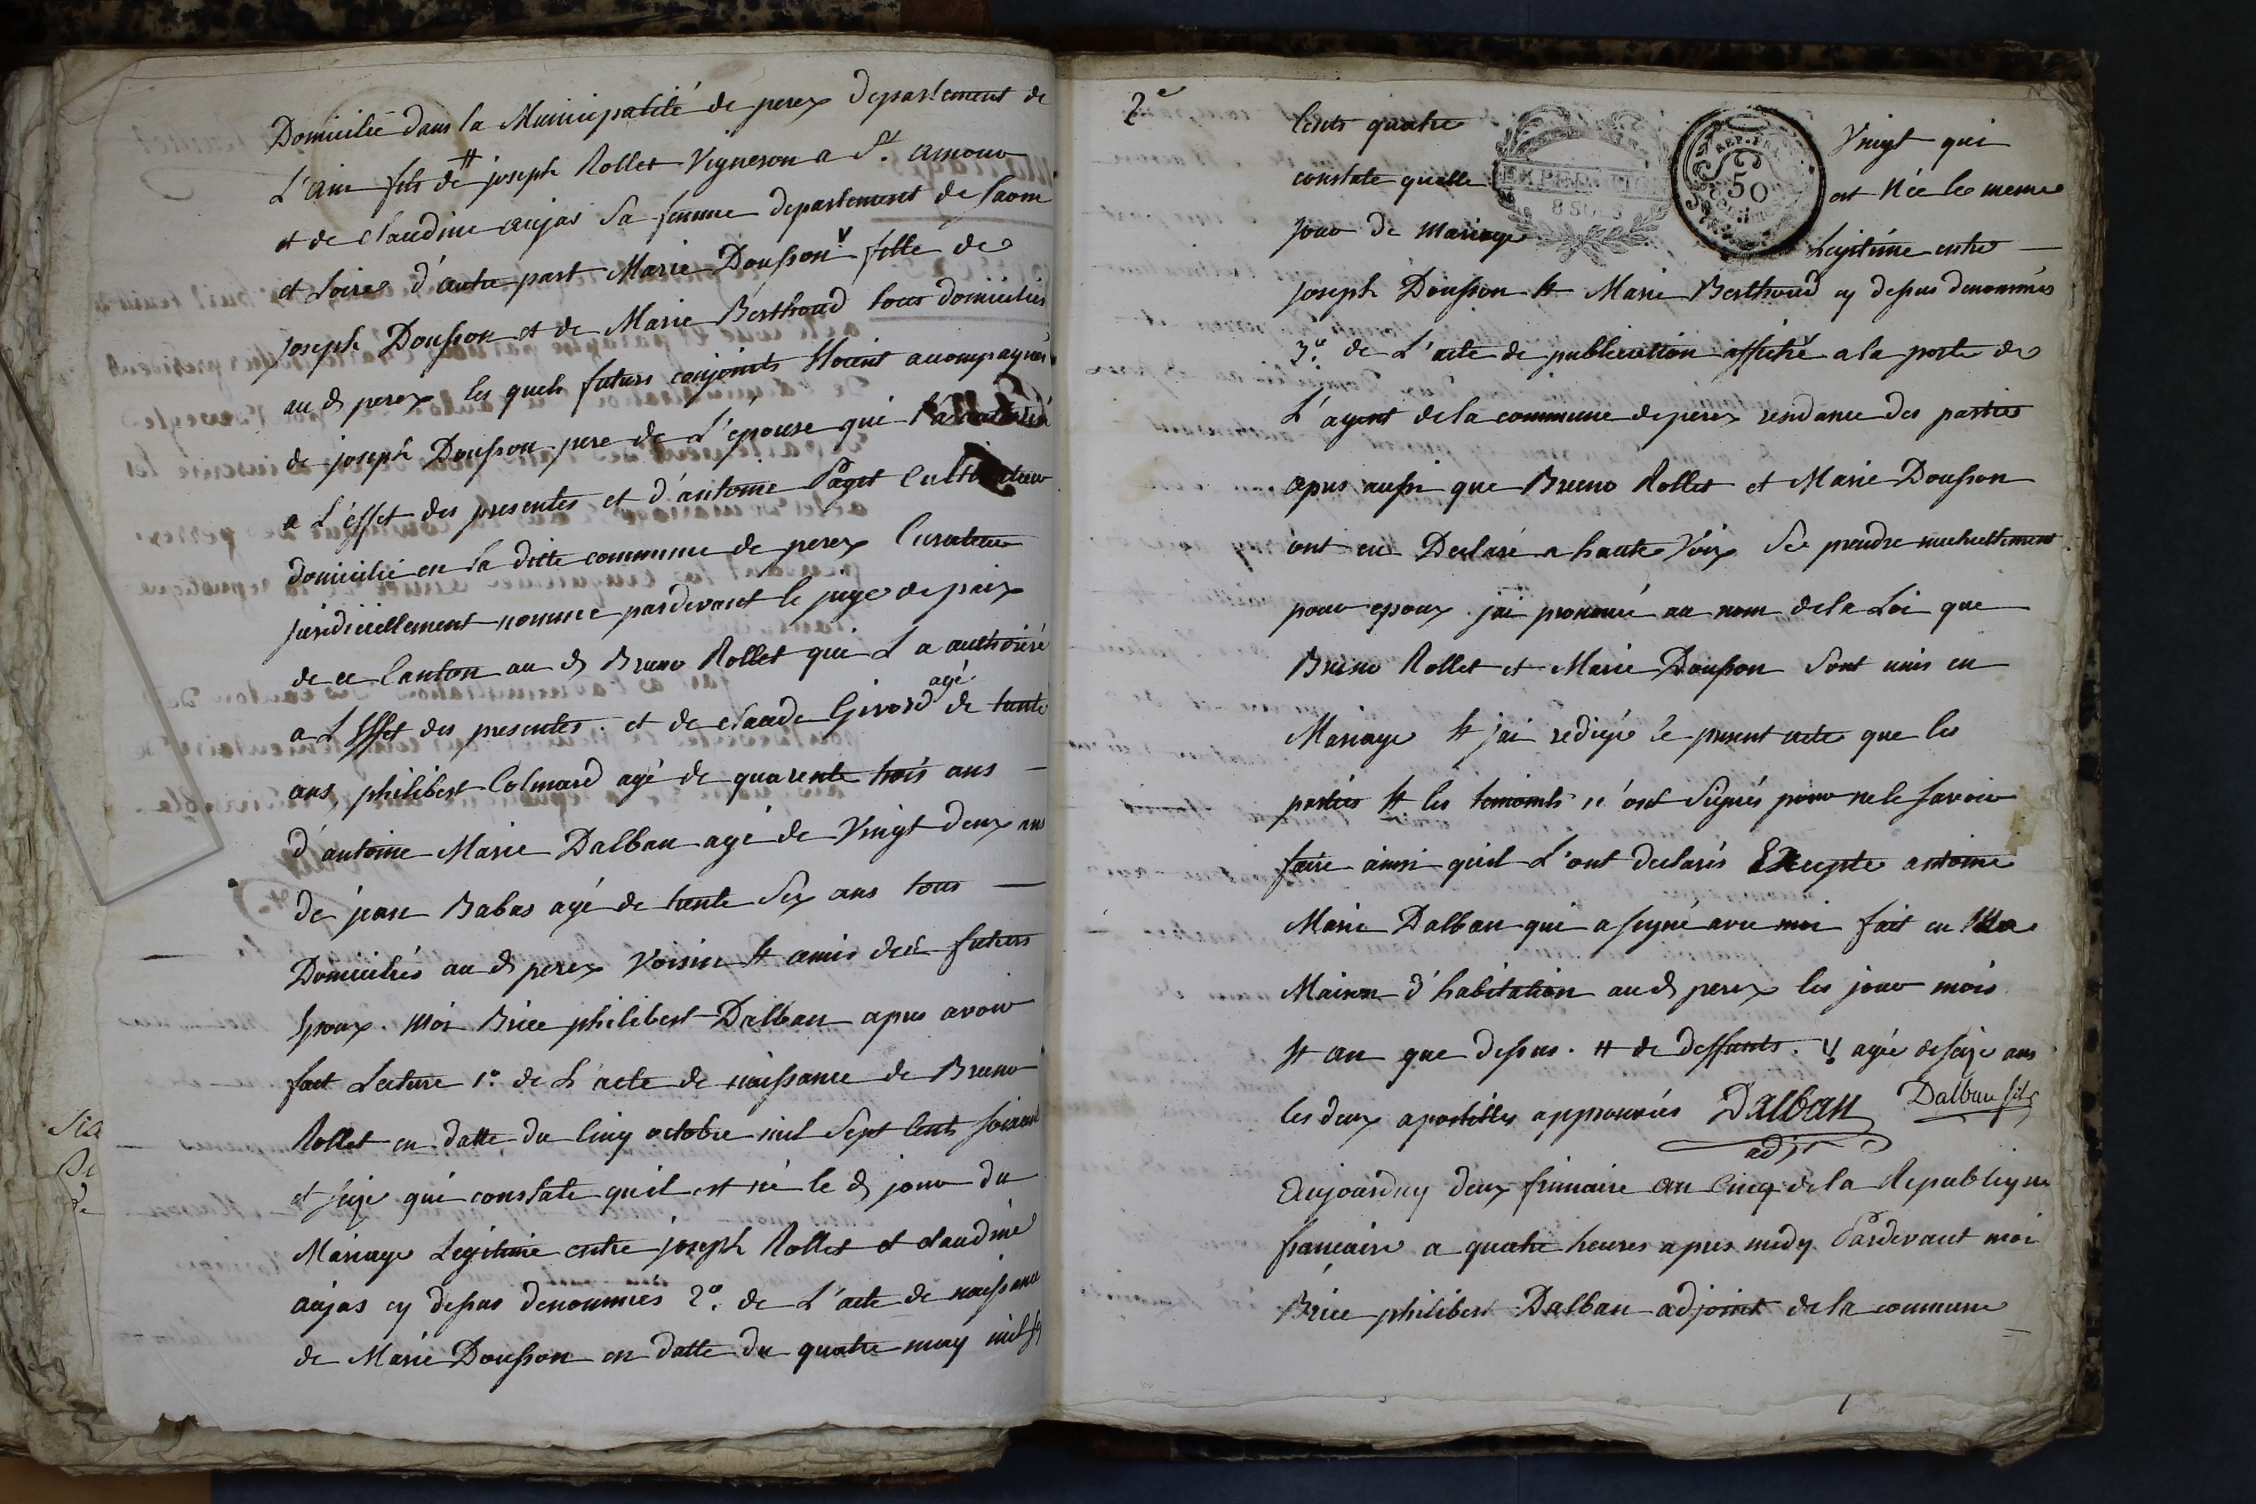 Domicilié dans la Municipalité de perex departement de
L'ain fils de # joseph Rollet Vigneron a St. amour
et de claudine aujas Sa femme departement de Saone
et Loire d'autre part Marie Dousson V fille de
joseph Dousson et de Marie Berthoud tous domiciliés
au d perex les quels futurs conjoints Etoient accompagnés
de joseph Dousson pere de L'epouse qui l'a
a L'effet des presentes et d'antoine Paget Cultivateur
domicilié en la ditte commune de perex Curateur
juridiciellement nommé pardevant le juge de paix
de ce Canton au d Bruno Rollet qui L a authorisé
a L Effet des presentes. et de claude Girord agé de trente
ans, philibert Colmard agé de quarente trois ans –
d'antoine Marie Dalban agé de Vingt deux ans
de jean Babas agé de trente Six ans tous —
Domiciliés au d perex Voisin Et amis des futurs
Epoux. Moi Brice philibert Dalban apres avoir
fait Lecture 1°. de L acte de naissance de Bruno
Rollet en datte du Cinq octobre mil Sept Cents soixante
et seize qui constate qu'il est né le d jour du
Mariage Legitime entre joseph Rollet et claudine
aujas cy dessus denommés 2°. de L'acte de naissance
de Marie Dousson en datte du quatre may mil
2e
Cents quatre Vingt qui
constate quelle est Née le meme
jour de mariage Legitime entre —
EXPEDITION
8 SOLS
REP. FRA.
50
joseph Dousson Et Marie Berthoud cy dessus denommés
3°. de L'acte de publication affiché a la porte de
L'agent de la commune de perex rendance des parties
apres aussi que Bruno Rollet et Marie Dousson
ont eu Declaré a haute Voix Se prendre mutuellement
pour epoux. jai prononcé au nom de la Loi que
Bruno Rollet et Marie Dousson Sont unis en
Mariage Et jai redigé le present acte que les
parties Et les temoints n'ont Signés pour ne le savoir
faire ainsi qu'il L'ont declarés Excepte antoine
Marie Dalban qui a signé avec moi fait en Ma
Maison d'habitation au d perex les jour mois
Et an que dessus. # de deffunts. V agée de seize ans
les deux apostilles approuvées Dalban Dalban fils
adjt
Aujourduy deux frimaire an Cinq de la Republique
francaise a quatre heures apres midy. Pardevant moi
Brice philibert Dalban adjoint de la commune